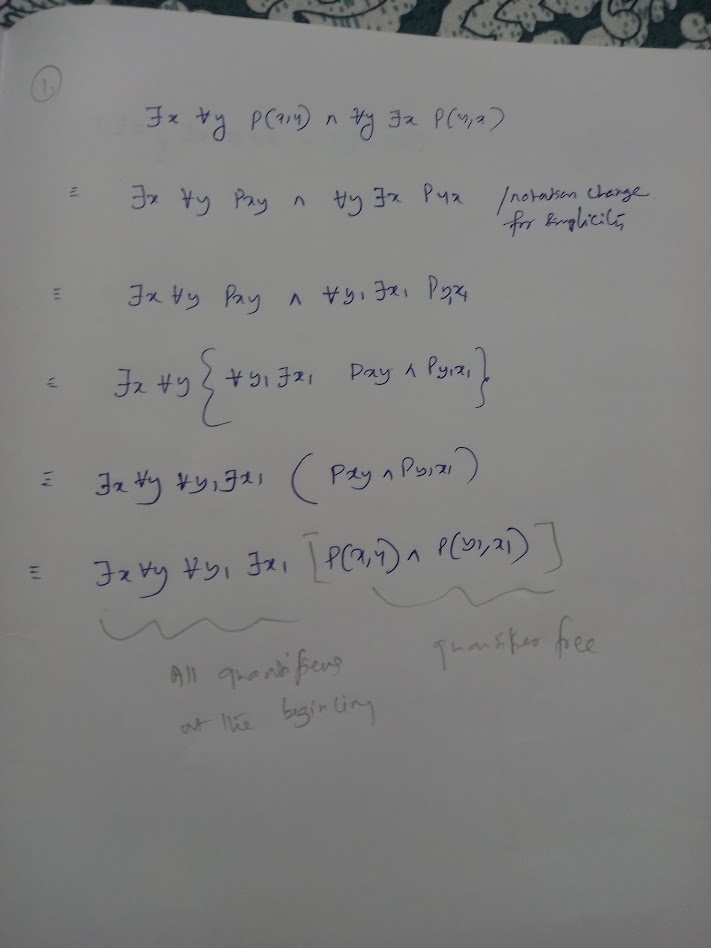 1.
∃x ∀y P(x,y) ∧ ∀y ∃x P(y,x)
≡ ∃x ∀y Pxy ∧ ∀y ∃x Pyx /notation change
for simplicity
≡ ∃x ∀y Pxy ∧ ∀y₁ ∃x₁ Py₁x₁
≡ ∃x ∀y { ∀y₁ ∃x₁ Pxy ∧ Py₁x₁ }
≡ ∃x ∀y ∀y₁ ∃x₁ ( Pxy ∧ Py₁x₁ )
≡ ∃x ∀y ∀y₁ ∃x₁ [ P(x,y) ∧ P(y₁,x₁) ]
All quantifiers quantifier free
at the beginning